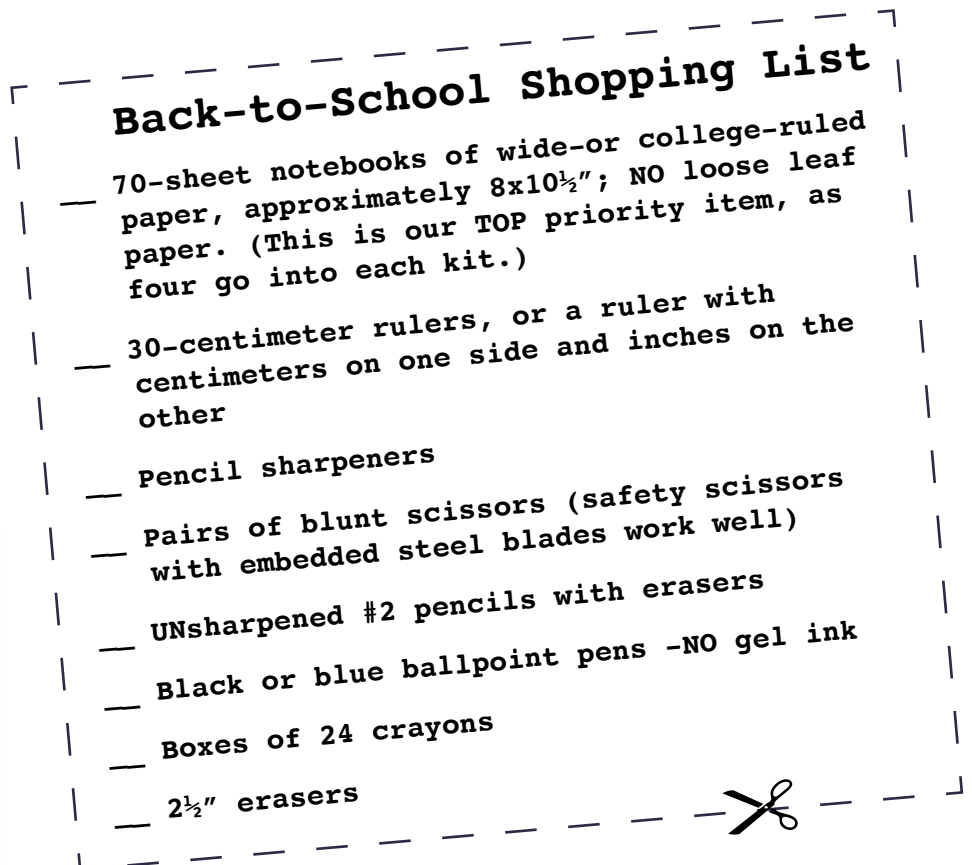 Back-to-School Shopping List
__ 70-sheet notebooks of wide-or college-ruled
paper, approximately 8x10½″; NO loose leaf
paper. (This is our TOP priority item, as
four go into each kit.)
__ 30-centimeter rulers, or a ruler with
centimeters on one side and inches on the
other
__ Pencil sharpeners
__ Pairs of blunt scissors (safety scissors
with embedded steel blades work well)
__ UNsharpened #2 pencils with erasers
__ Black or blue ballpoint pens -NO gel ink
__ Boxes of 24 crayons
__ 2½″ erasers